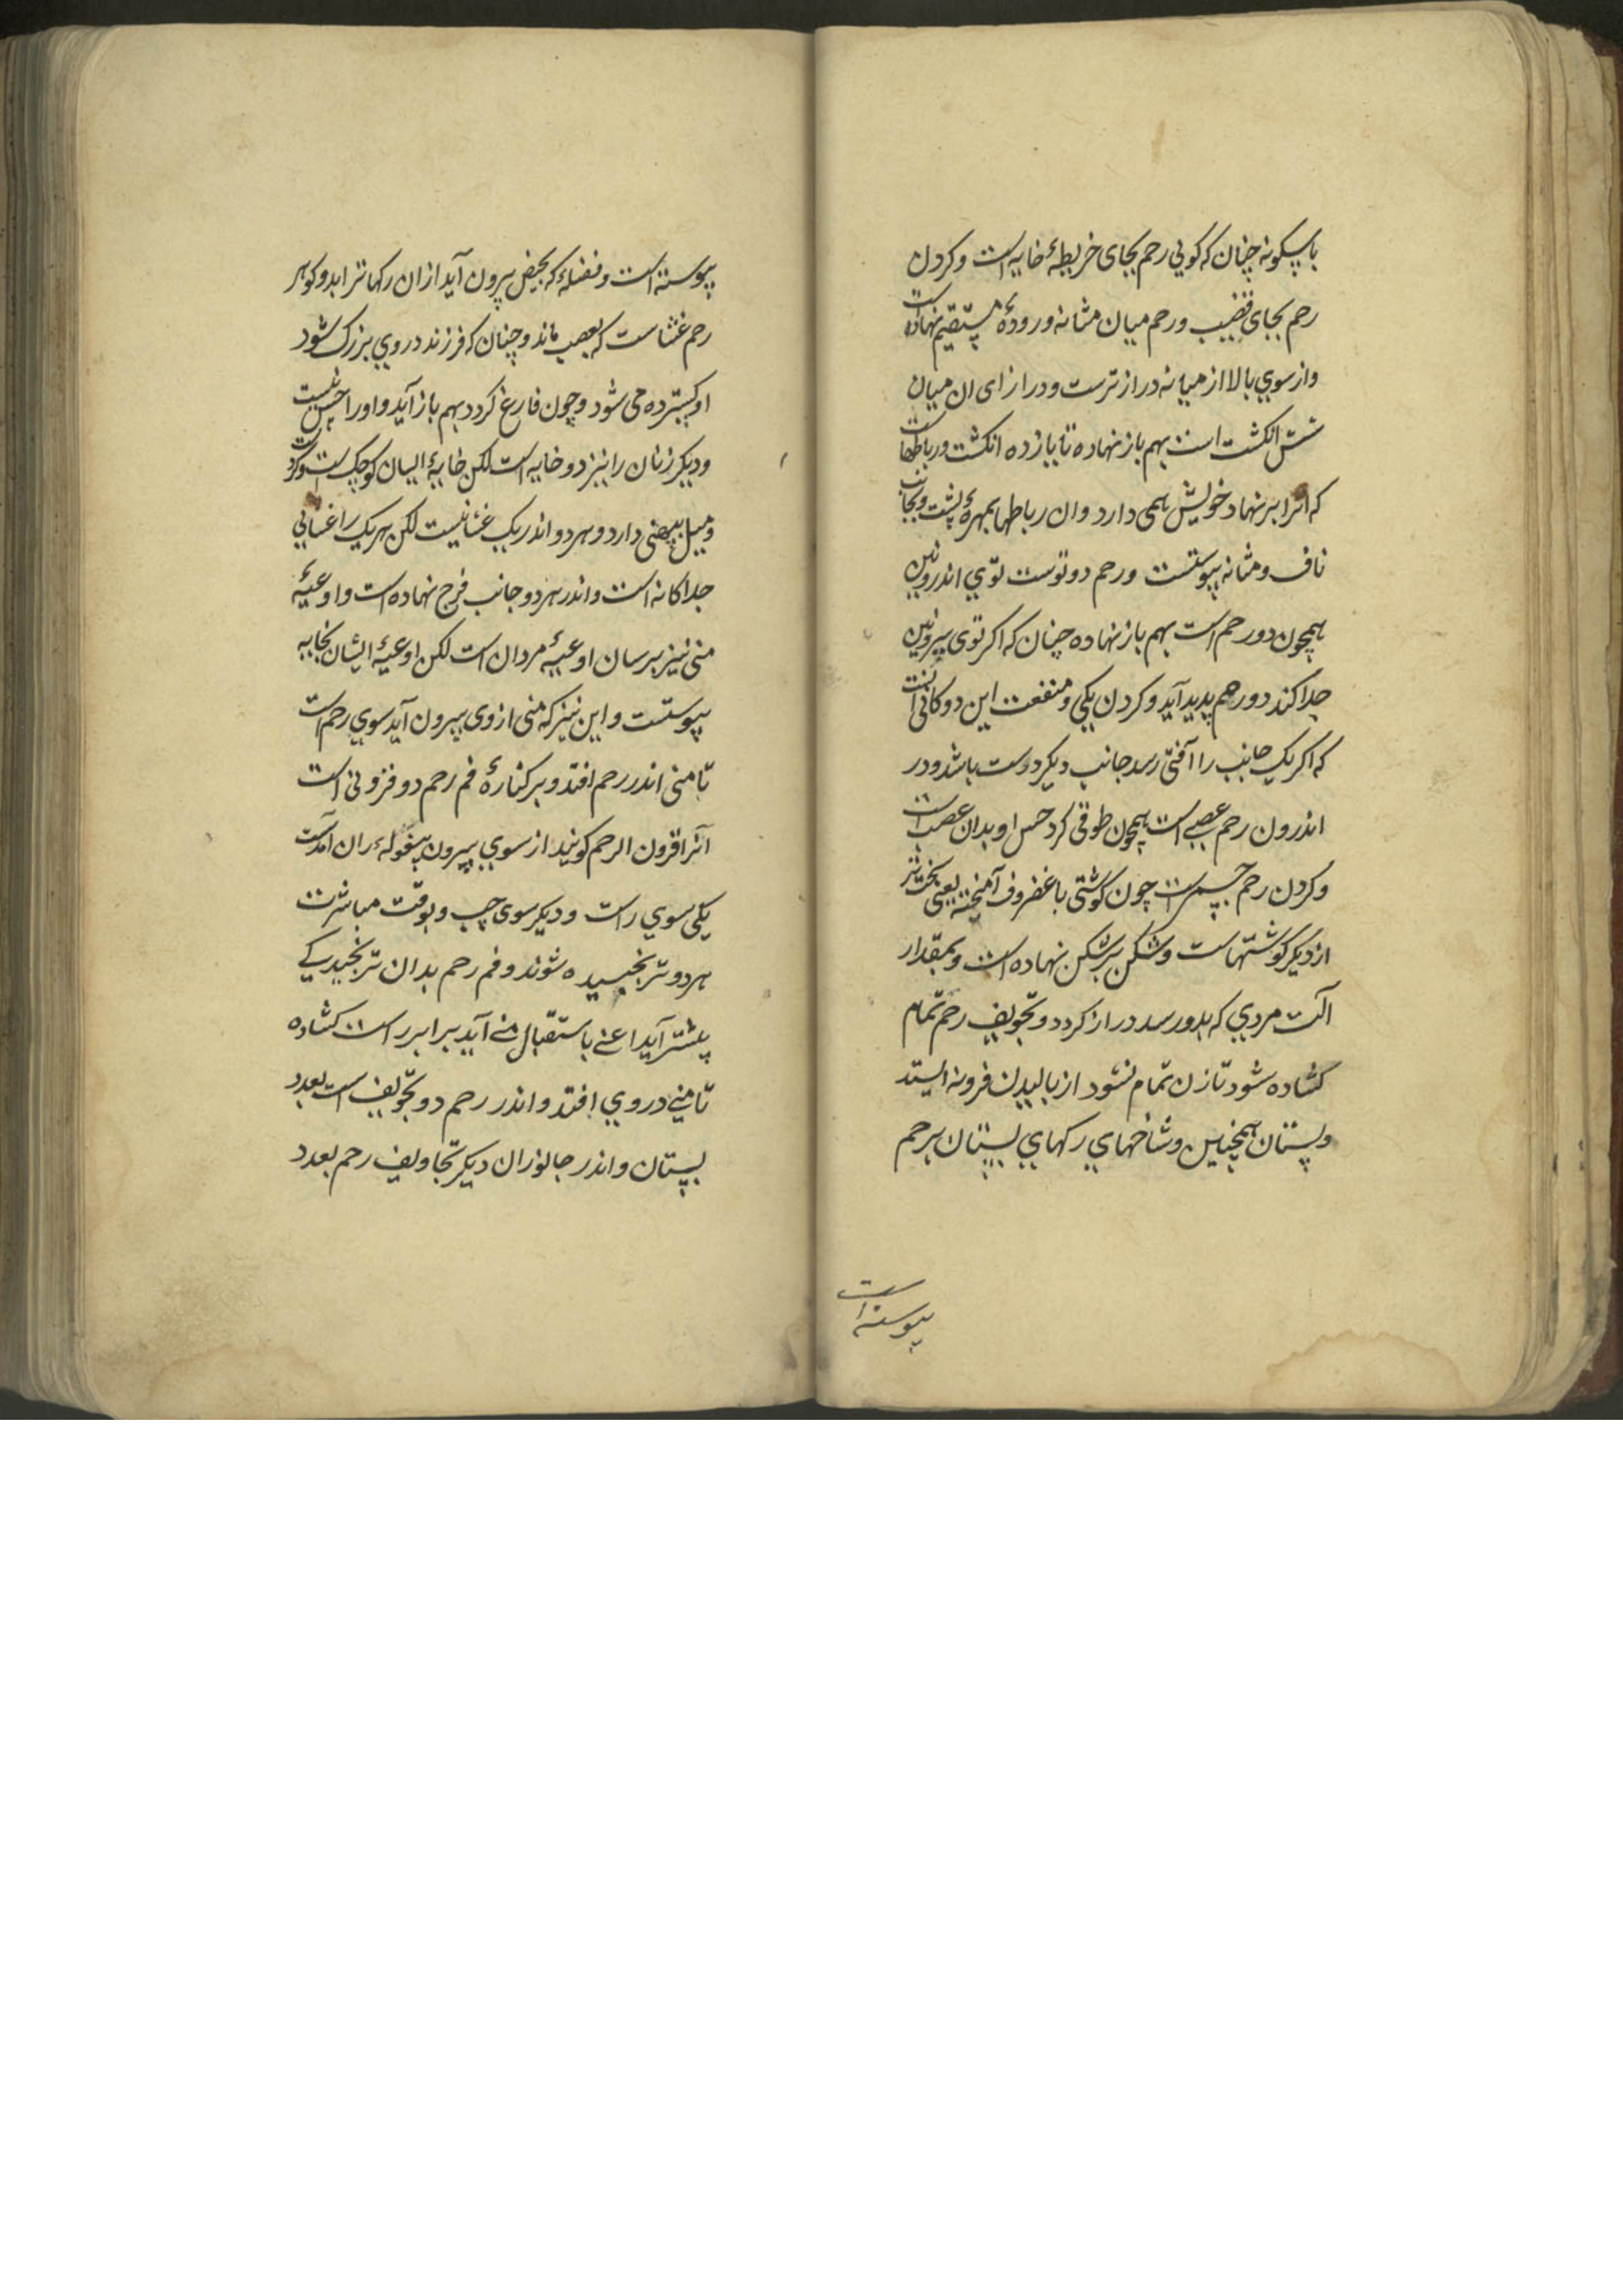 باشکونه چنان که کویی رحم بجای خریطهٔ خایه است و کردن
رحم بجای قضیب و رحم میان مثانه و رودهٔ مستقیم نهاده است
و از سوی بالا از میانه درازترست و درازای ان میان
شش انکشت است بهم باز نهاده تا یازده انکشت و رباطهاست
که انرا بر نهاد خویش همی دارد وان رباطها بمهرهٔ پشت و بجانب
ناف و مثانه پیوستست و رحم دو توست تویی اندرونین
همچون دو رحم است بهم باز نهاده چنان که اکر توی بیرونین
جدا کند دو رحم پدید آید و کردن یکی و منفعت این دوکانی آنست
که اکر یک جانب را آفتی رسد جانب دیکر درست باشد و در
اندرون رحم عصبی است همچون طوقی کرد حس او بدان عصبست
و کردن رحم جسمی است چون کوشتی با غضروف آمیخته یعنی سخت‌تر
از دیکر کوشتهاست و شکن بر شکن نهاده است و بمقدار
آلت مردی که بدو رسد دراز کردد و تجویف رحم تمام
کشاده شود تا زن تمام نشود از بالیدن فرو نه ایستد
و پستان همچنین و شاخهای رکهای پستان برحم
پیوسته است
پیوسته است و فضلهٔ که بحیض بیرون آید از ان رکها ترابد و کوهر
رحم غشاست که بعصب ماند و چنان که فرزند در وی بزرک شود
او کسترده می شود و چون فارغ کردد بهم باز آید و او را حس نیست
و دیکر زنان را نیز دو خایه است لکن خایهٔ ایشان کوچک است و کرد
و میل بپهنی دارد و هر دو اندر یک غشا نیست لکن هر یک را غشایی
جداکانه است و اندر هر دو جانب فرج نهاده است و اوعیهٔ
منی نیز برسان اوعیهٔ مردان است لکن اوعیهٔ ایشان بخایه
پیوستست و این نیز که منی از وی بیرون آید سوی رحم است
تا منی اندر رحم افتد و بر کنارهٔ فم رحم دو فزونی است
آنرا قرون الرحم کویند از سوی بیرون ببغولهٔ ران آمدست
یکی سوی راست و دیکر سوی چپ و بوقت مباشرت
هر دو ترنجیده شوند و فم رحم بدان ترنجیدکی
پیشتر آید اعنی باستقبال منی آید برابر راست کشاده
تا منی در وی افتد و اندر رحم دو تجویف است بعدد
پستان و اندر جانوران دیکر تجاویف رحم بعدد